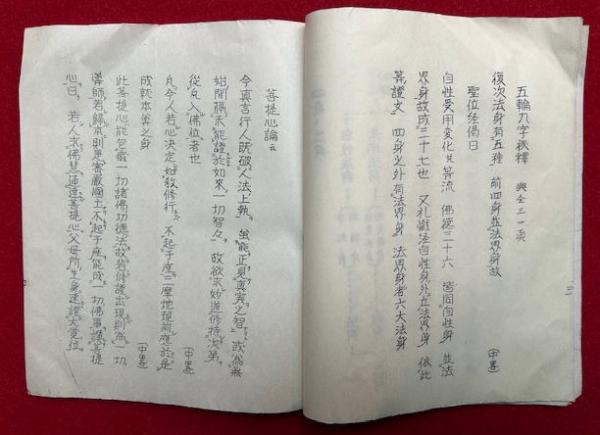 五輪九字秘釋 興全三一頁
復次法身有五種 前四身並法界身故
聖位経偈曰 (中畧)
自性受用変化其等流 佛徳三十六 皆同自性身 並法
界身故成三十七也 又礼懺法自性身外立法界身 依此
等證文 四身之外有法界身 法界身者六大法身
菩提心論云
今真言行人既破人法上執 虽能正見真実之智 或為無
始間隔未能證於如來一切智々 故欲求妙道修持次第
從凡入佛位者也 (中畧)
凡今人若心決定如教修行 不起于座三摩地現前應於是
成就本尊之身
此菩提心能包蔵一切諸佛功徳法故若修證出現則為一切
導師若歸本則是密厳國土不起于座能成一切佛事讃菩提
心曰 若人求佛慧通達菩提心父母所生身速證大覚位